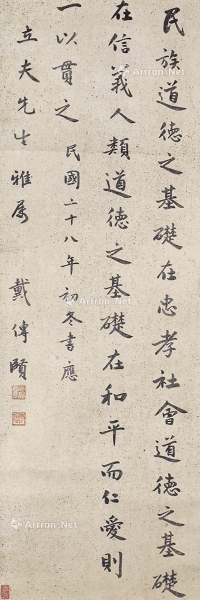 民族道德之基礎在忠孝社會道德之基礎
在信義人類道德之基礎在和平而仁愛則
一以貫之 民國二十八年初冬書應
立夫先生雅屬 戴傳賢
Artron.Net